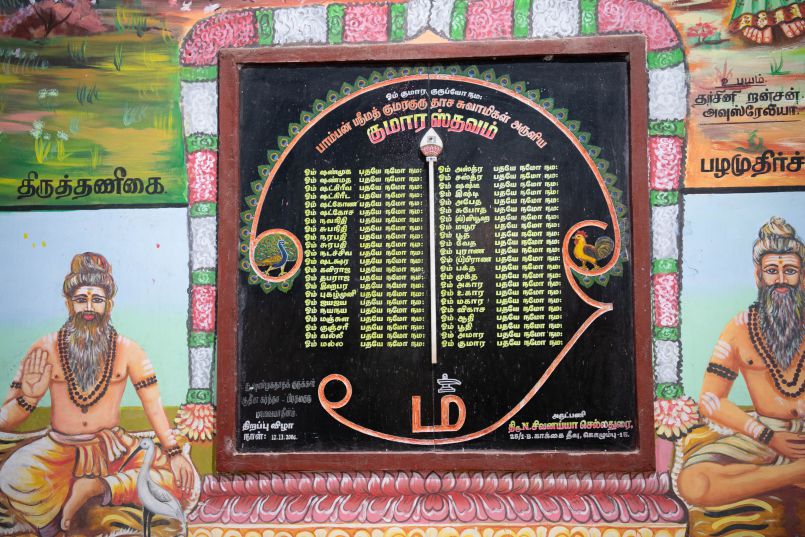 ஓம் குமார குருப்யோ நம:
பாம்பன் ஸ்ரீமத் குமரகுரு தாச சுவாமிகள் அருளிய
குமார ஸ்தவம்
ஓம் ஷண்முக பதயே நமோ நம:
ஓம் ஷண்மத பதயே நமோ நம:
ஓம் ஷட்கிரீவ பதயே நமோ நம:
ஓம் ஷட்கிரீட பதயே நமோ நம:
ஓம் ஷட்கோண பதயே நமோ நம:
ஓம் ஷட்கோச பதயே நமோ நம:
ஓம் நவநிதி பதயே நமோ நம:
ஓம் சுபநிதி பதயே நமோ நம:
ஓம் நரபதி பதயே நமோ நம:
ஓம் சுரபதி பதயே நமோ நம:
ஓம் நடச்சிவ பதயே நமோ நம:
ஓம் ஷடக்ஷர பதயே நமோ நம:
ஓம் கவிராஜ பதயே நமோ நம:
ஓம் தபராஜ பதயே நமோ நம:
ஓம் இஹபர பதயே நமோ நம:
ஓம் புகழ்முனி பதயே நமோ நம:
ஓம் ஜயஜய பதயே நமோ நம:
ஓம் நயநய பதயே நமோ நம:
ஓம் மஞ்சுள பதயே நமோ நம:
ஓம் குஞ்சரீ பதயே நமோ நம:
ஓம் வல்லீ பதயே நமோ நம:
ஓம் மல்ல பதயே நமோ நம:
ஓம் அஸ்த்ர பதயே நமோ நம:
ஓம் சஸ்த்ர பதயே நமோ நம:
ஓம் ஷஷ்டி பதயே நமோ நம:
ஓம் இஷ்டி பதயே நமோ நம:
ஓம் அபேத பதயே நமோ நம:
ஓம் சுபோத பதயே நமோ நம:
ஓம் வியூஹ பதயே நமோ நம:
ஓம் மயூர பதயே நமோ நம:
ஓம் பூத பதயே நமோ நம:
ஓம் வேத பதயே நமோ நம:
ஓம் புராண பதயே நமோ நம:
ஓம் பிராண பதயே நமோ நம:
ஓம் பக்த பதயே நமோ நம:
ஓம் முக்த பதயே நமோ நம:
ஓம் அகார பதயே நமோ நம:
ஓம் உகார பதயே நமோ நம:
ஓம் மகார பதயே நமோ நம:
ஓம் விகாச பதயே நமோ நம:
ஓம் ஆதி பதயே நமோ நம:
ஓம் பூதி பதயே நமோ நம:
ஓம் அமார பதயே நமோ நம:
ஓம் குமார பதயே நமோ நம:
திறப்பு விழா
நாள்: 12.11.2004.
ம்
அருட்பணி
திரு.N.சிவனய்யா செல்லதுரை,
28/2-B, காக்கை தீவு, கொழும்பு-15.
திருத்தணிகை.
உபயம்.
தர்சினி றஞ்சன்
அவுஸ்ரேலியா.
பழமுதிர்ச்